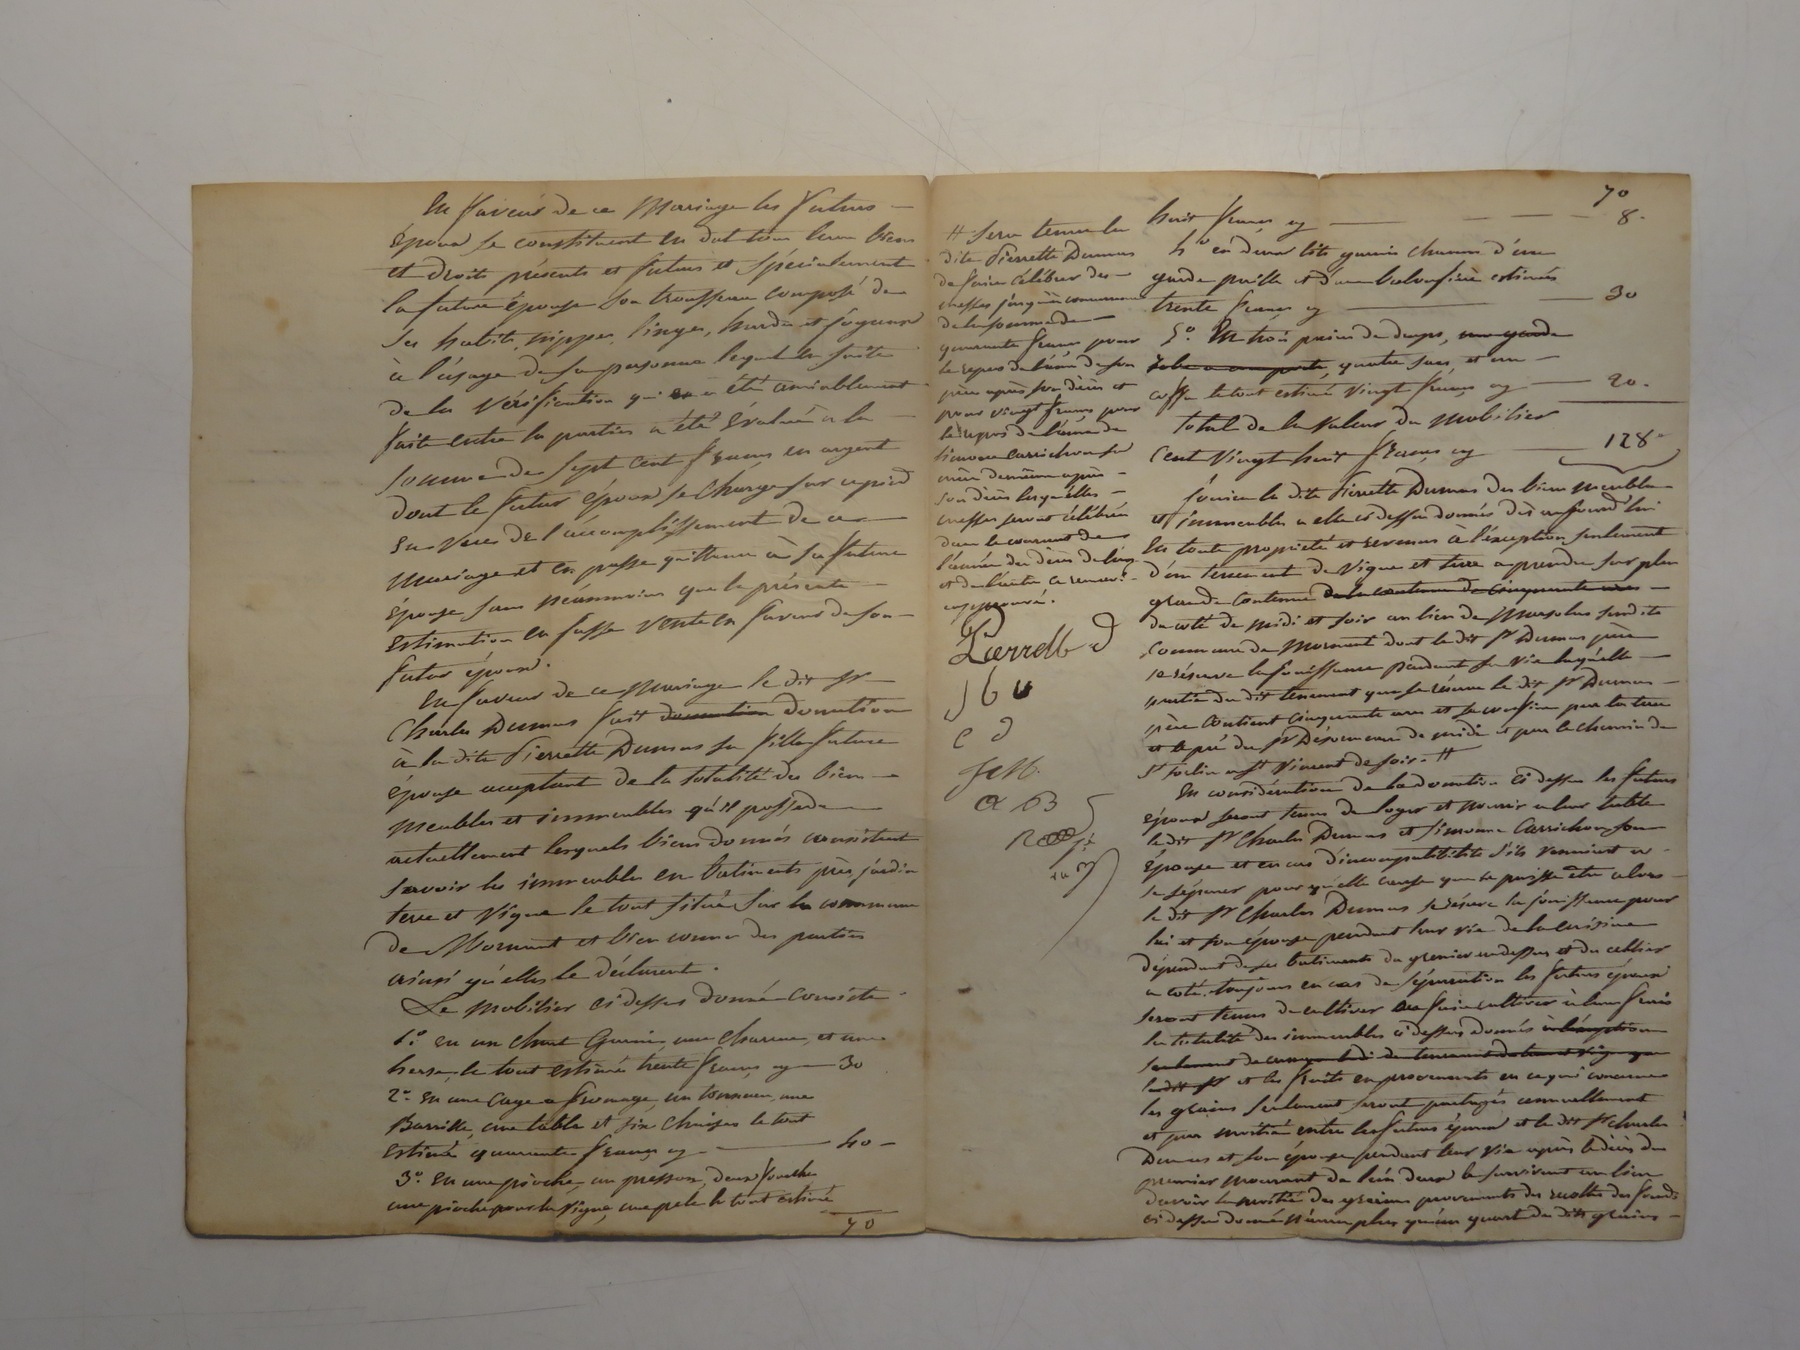 En faveur de ce Mariage les futurs
époux se constituent en dot tous leurs biens
et droits présents et futurs et spécialement
la future épouse son trousseau composé de
ses habits, nippes, linges, hardes et joyaux
à l'usage de sa personne lequel en suite
de la vérification qui en a été amiablement
faite entre les parties a été évalué à la
somme de sept cent francs en argent
dont le futur époux se charge sur ce pied
en vers de l'accomplissement de ce
mariage et en passe quittance à sa future
épouse sans néanmoins que la présente
estimation en fasse vente en faveur de son
futur époux.
En faveur de ce mariage le dit Sr
Charles Dumas fait donation donation
à la dite Pierrette Dumas sa fille future
épouse acceptant de la totalité des biens
meubles et immeubles qu'il possède
actuellement lesquels biens donnés consistent
savoir les immeubles en batiments près jardin
terre et vigne le tout situé sur la commune
de Mornant et bien connu des parties
ainsi qu'elles le déclarent.
Le mobilier ci dessus donné consiste
1.° en un char Garni, une charrue, et une
herse, le tout estimé trente francs cy — 30
2.° en une Cage a fromage, un tonneau, une
Barrike, une table et six chaises le tout
estimé quarante francs cy — 40 —
3.° En une pioche, un presson, deux fourche
une pioche pour la vigne, une pele le tout estimé
70
# sera tenue la
dite Pierrette Dumas
de faire célébrer des
messes jusqu'à concurrence
de la somme de
quarante francs pour
le repos de l'âme de son
père après son décès et
pour vingt francs pour
le repos de l'âme de
Simonne Carrichon sa
mère
son décès lesquelles
messes seront célébrées
dans le courant de
l'année du décès de l'un
et de l'autre ce renvoi
approuvé.
Pierrette D
C D
a B
70
huit francs cy — 8.
4° en deux lits garnis chacun d'une
garde paille et d'une balouffière estimés
trente francs cy — 30
5.° En trois paires de draps, une garde
robe quatre sacs, et un
coffre le tout estimé vingt francs cy — 20.
total de la valeur du mobilier
Cent vingt huit francs cy — 128
Jouira la dite Pierrette Dumas des biens meubles
et immeubles a elle ci dessus donnés dès aujourd'hui
En toute proprieté et revenus à l'exception seulement
d'un tenement de vigne et terre a prendre sur plus
grande contenue de la contenue de cinquante ares
du coté de midi et soir au lieu de sus dite
Commune de Mornant dont le dit Sr Dumas père
se réserve la jouissance pendant sa vie laquelle
partie du dit tenement que se réserve le dit Sr Dumas
père contient cinquante ares et se confine par la terre
et le pré du Sr de midi et par le chemin de
St à St Vincent de soir. #
En considération de la donation ci dessus les futurs
époux seront tenus de loger et nourrir a leur table
le dit Sr Charles Dumas et Simonne Carrichon son
épouse et en cas d'incompatibilité s'ils venaient a
se séparer pour qu'elle cause que ce puisse etre alors
le dit Sr Charles Dumas se réserve la jouissance pour
lui et son épouse pendant leur vie de la cuisine
dépendant de ses batiments du grenier au dessus et du cellier
a coté. toujours en cas de séparation les futurs époux
seront tenus de cultiver ou faire cultiver à leurs frais
la totalité des immeubles ci dessus donnés à l'exception
seulement
le dit Sr et les fruits en provenants en ce qui concerne
les grains seulement seront partagés annuellement
et par moitié entre les futurs époux et le dit Sr Charles
Dumas et son épouse pendant leur vie après le décès du
premier mourant de l'un deux le survivant au lieu
d'avoir la moitié des grains provenants des recoltes des fonds
ci dessus donnés n'aura plus qu'un quart des dits grains